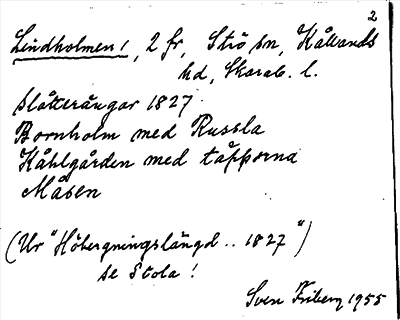 2
Lindholmen 1, 2 fr, Strö sn, Kållands
hd, Skarab. l.
Slåtterängar 1827.
Bornholm med Russla
Kåhlgården med täpporna
Måsen
(Ur "Höbergningslängd .. 1827")
se Stola!
Sven Friberg 1955